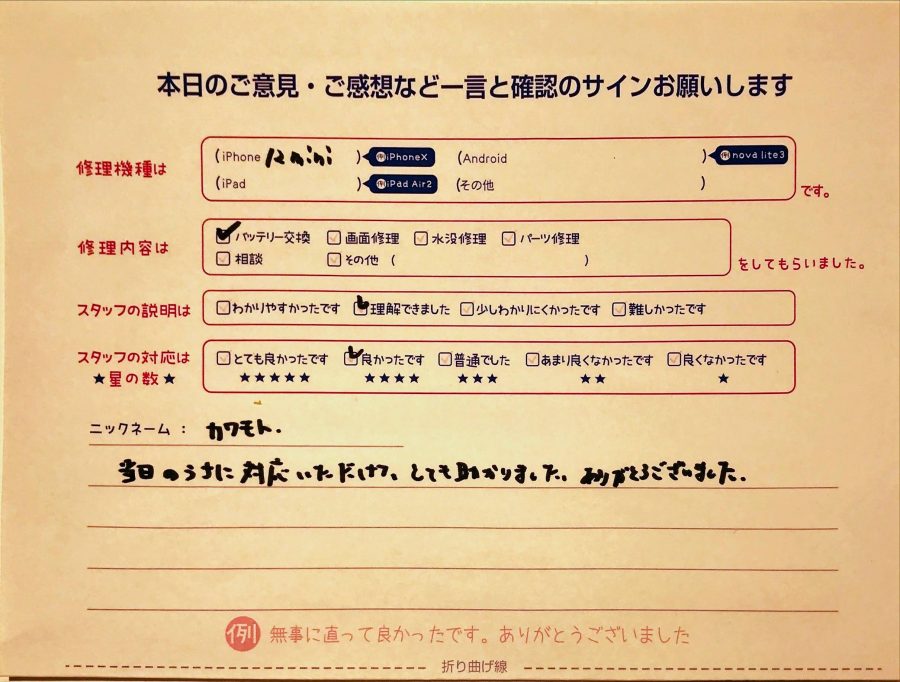 本日のご意見・ご感想など一言と確認のサインお願いします
修理機種は
(iPhone 12 mini ) 例iPhoneX (Android ) 例nova lite3
(iPad ) 例iPad Air2 (その他 ) です。
修理内容は
バッテリー交換 画面修理 水没修理 パーツ修理
相談 その他 ( ) をしてもらいました。
スタッフの説明は わかりやすかったです 理解できました 少しわかりにくかったです 難しかったです
スタッフの対応は とても良かったです 良かったです 普通でした あまり良くなかったです 良くなかったです
★星の数★ ★★★★★ ★★★★ ★★★ ★★ ★
ニックネーム : カワモト.
当日のうちに対応いただけて、とても助かりました。ありがとうございました.
例 無事に直って良かったです。ありがとうございました
折り曲げ線